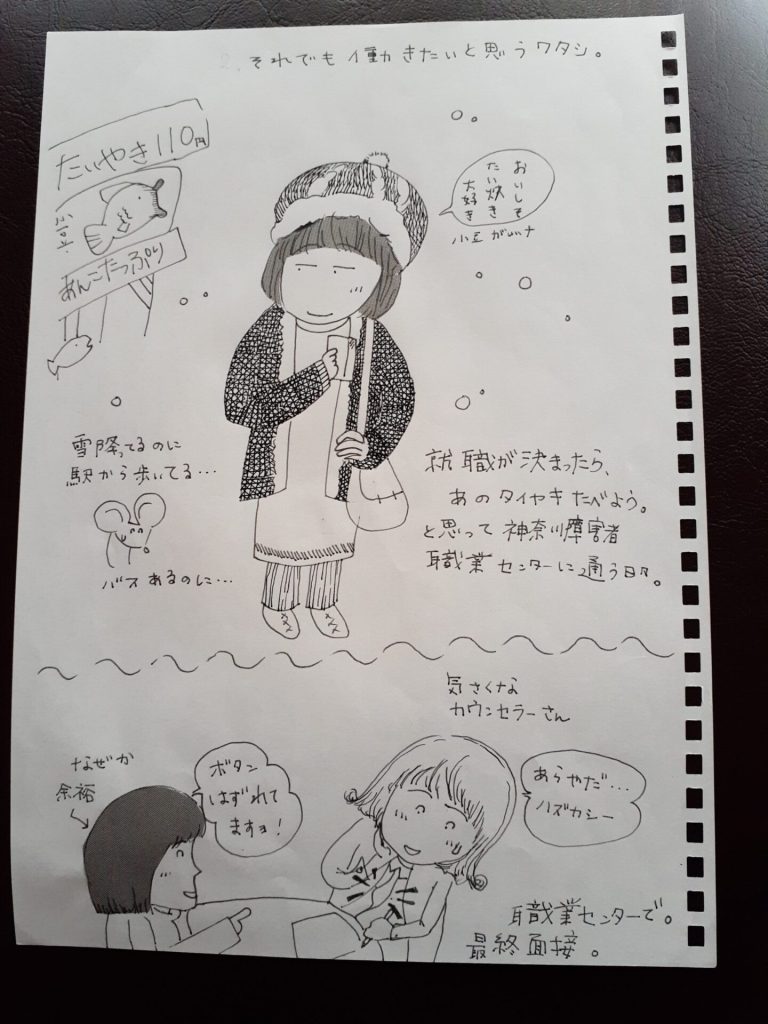 2. それでも働きたいと思うワタシ。
たいやき110円
小豆
あんこたっぷり
おいしそ
たい炊き
大好き
小豆がいいナ
雪降ってるのに
駅から歩いてる…
バスあるのに…
就職が決まったら、
あのタイヤキたべよう。
と思って神奈川障害者
職業センターに通う日々。
気さくな
カウンセラーさん
なぜか
余裕
ボタン
はずれて
ますョ!
あらやだ…
ハズカシー
職業センターで。
最終面接。